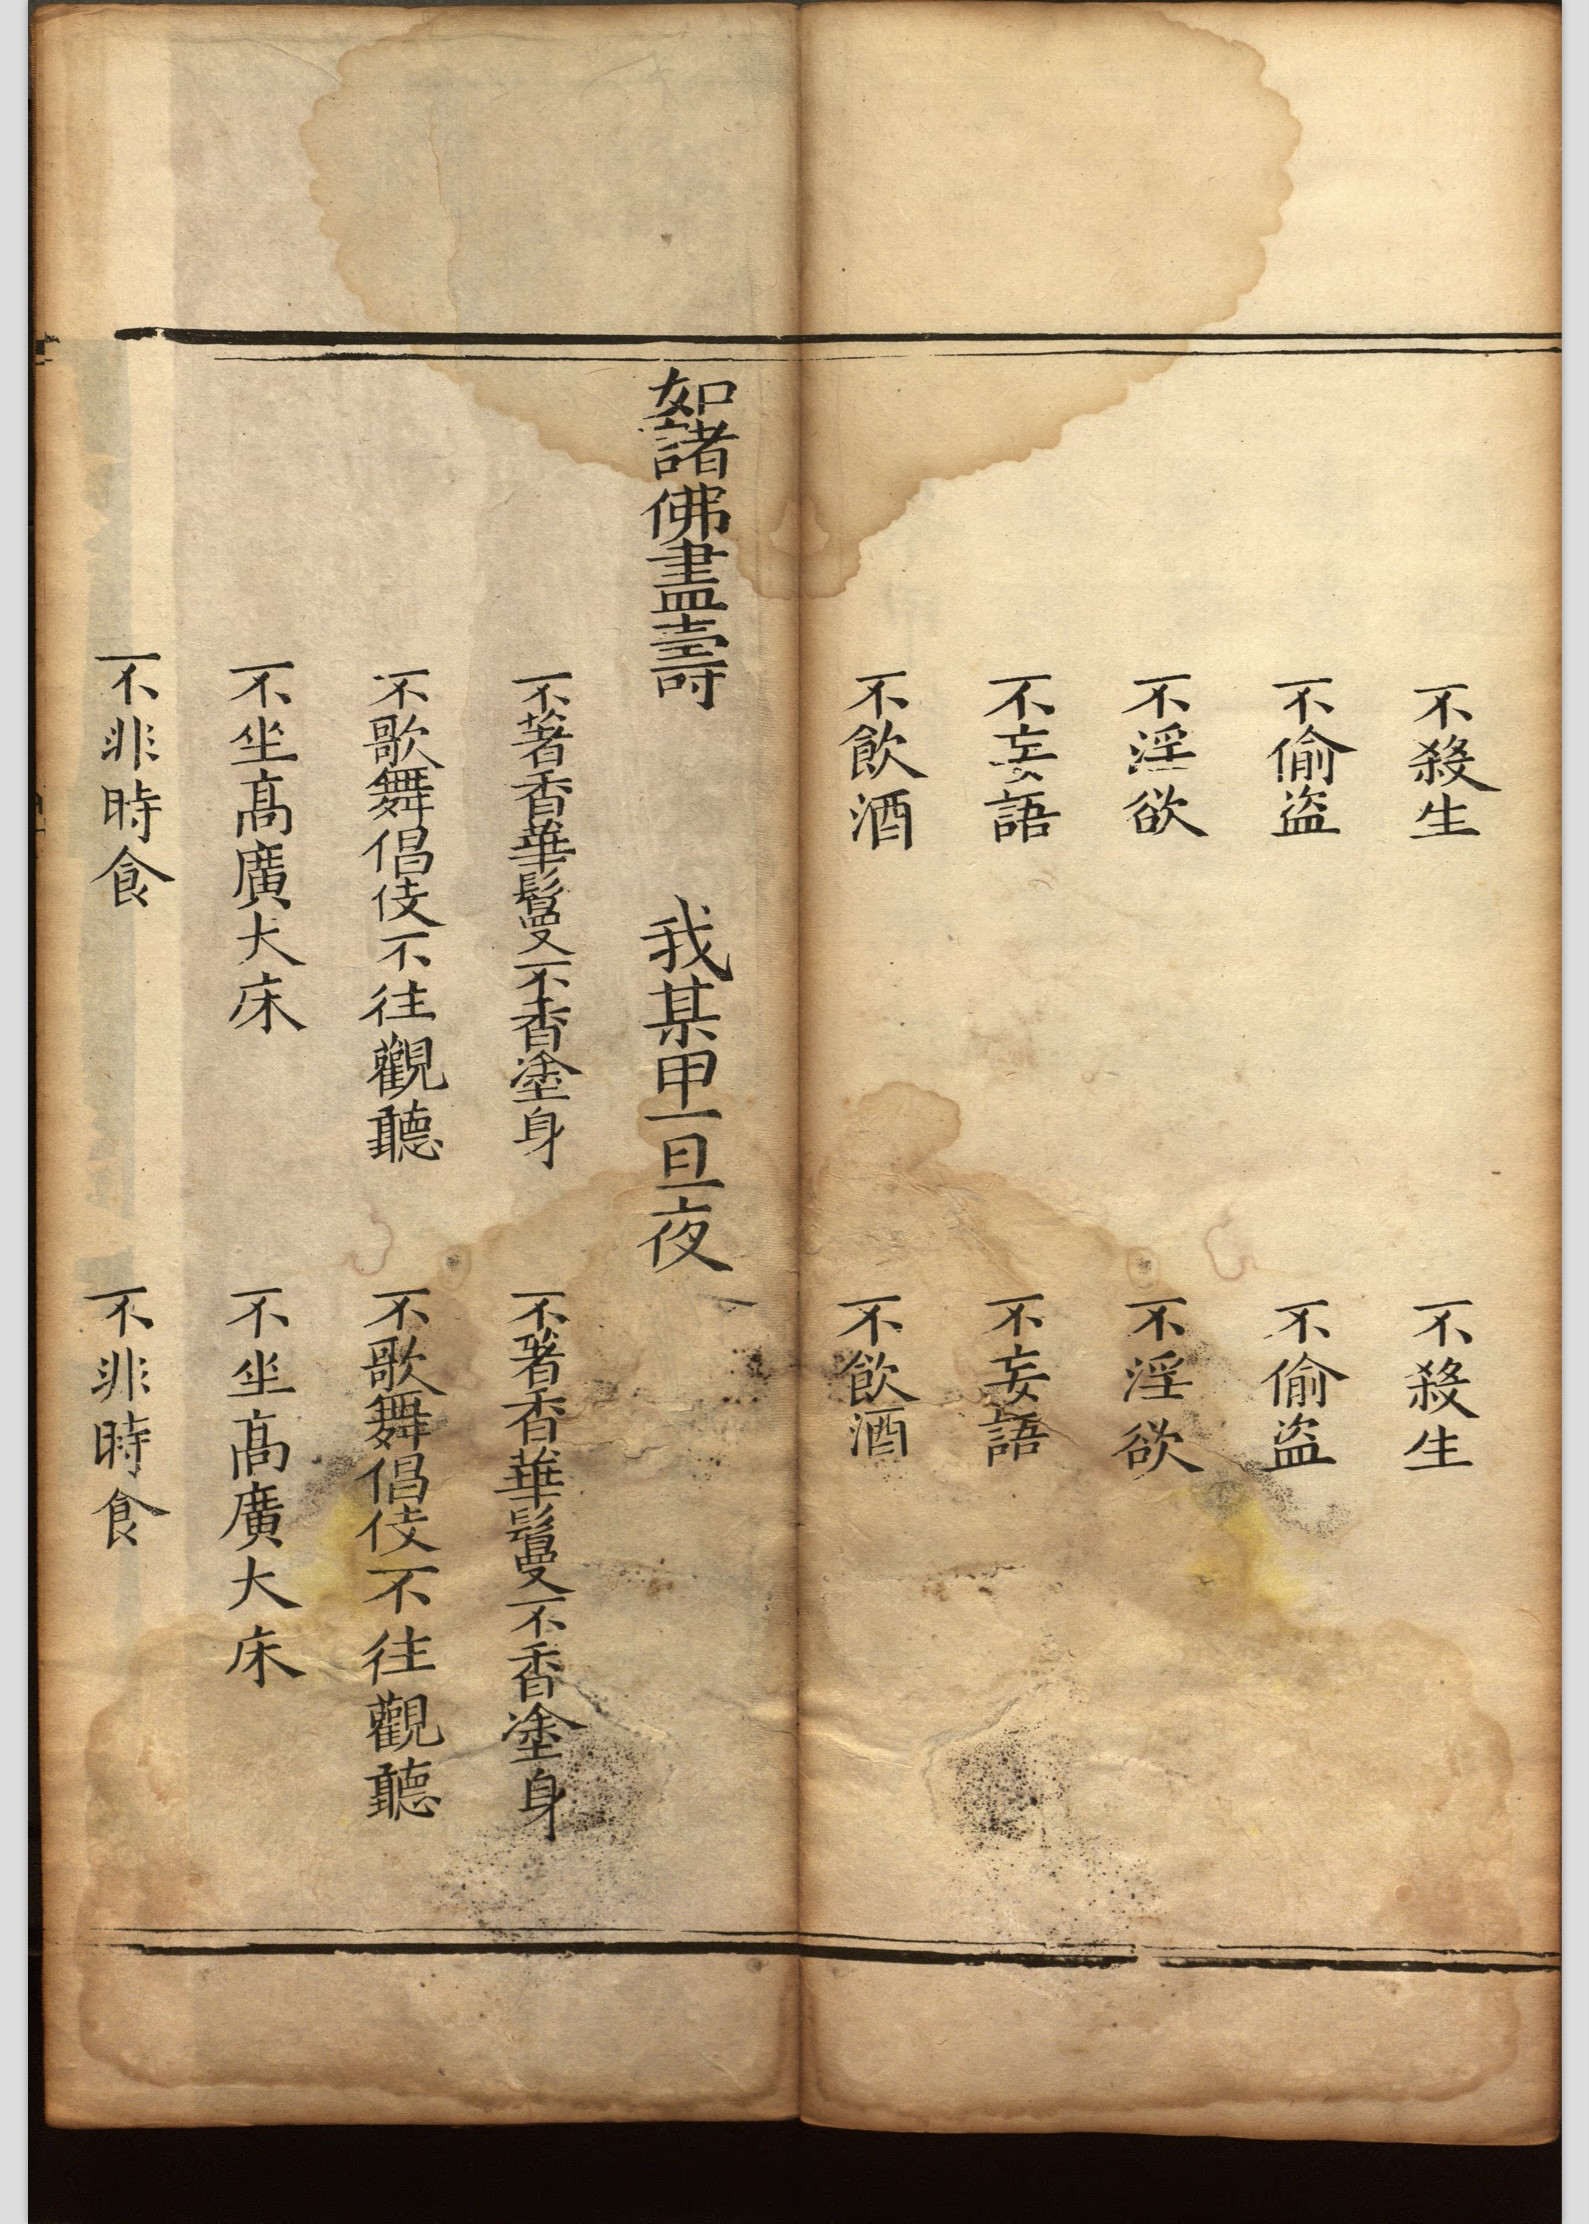 不殺生　不殺生
不偷盜　不偷盜
不淫欲　不淫欲
不妄語　不妄語
不飲酒　不飲酒
如諸佛盡壽　我某甲一旦夜
不著香華鬘不香塗身　不著香華鬘不香塗身
不歌舞倡伎不往觀聽　不歌舞倡伎不往觀聽
不坐高廣大床　不坐高廣大床
不非時食　不非時食